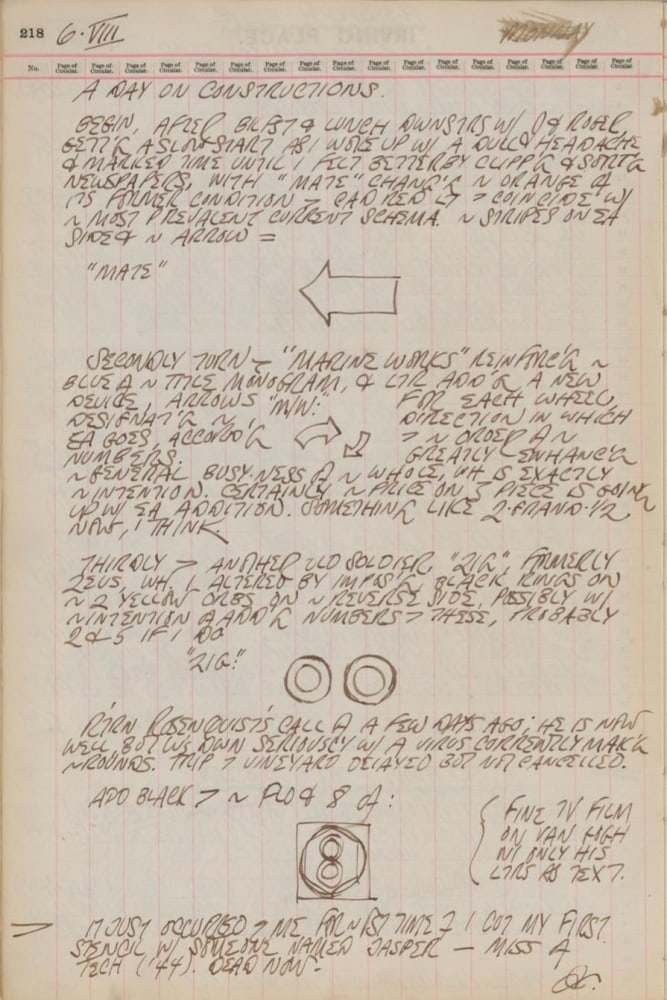 218 6·VIII MONDAY
No. Page of Circular. Page of Circular. Page of Circular. Page of Circular. Page of Circular. Page of Circular. Page of Circular. Page of Circular. Page of Circular. Page of Circular. Page of Circular. Page of Circular. Page of Circular. Page of Circular. Page of Circular. Page of Circular. Page of Circular.
A DAY ON CONSTRUCTIONS.
BEGIN, AFTER & LUNCH DWNSTRS W/ J & ROBER,
GETT'G A SLOW START AS I WOKE UP W/ A DULL HEADACHE
& MARKED TIME UNTIL I FELT BETTER BY CLIPP'G & SORT'G
NEWSPAPERS, WITH "MATE" CHANG'G ~ ORANGE OF
ITS FORMER CONDITION > CAD RED LT > COINCIDE W/
~ MOST PREVALENT CURRENT SCHEMA. ~ STRIPES ON EA
SIDE & ~ ARROW =
"MATE"
SECONDLY TURN "MARINE WORKS" REINFORC'G ~
BLUE ~ TITLE MONOGRAM, & LTR ADD'G A NEW
DEVICE, ARROWS "M/W." FOR EACH WHEEL
DESIGNAT'G ~ DIRECTION IN WHICH
EA GOES, ACCORD'G > ~ ORDER ~
NUMBERS. GREATLY ENHANC'G
~ GENERAL BUSY-NESS ~ WHOLE, WH IS EXACTLY
~ INTENTION. CERTAINLY ~ PRICE ON PIECE IS GOING
UP W/ EA ADDITION. SOMETHING LIKE 2·GRAND·1/2
NOW, I THINK.
THIRDLY > ANOTHER OLD SOLDIER, "ZIG", FORMERLY
ZEUS, WH I ALTERED BY IMPOS'G BLACK RINGS ON
~ 2 YELLOW ORBS ON ~ REVERSE SIDE, POSSIBLY W/
~ INTENTION ADD'G NUMBERS > THESE, PROBABLY
2 & 5 IF I DO
"ZIG."
R'TRN ROSENQUIST'S CALL A FEW DAYS AGO; HE IS NOW
WELL, BUT WS DWN SERIOUSLY W/ A VIRUS CURRENTLY MAK'G
~ ROUNDS. TRIP > VINEYARD DELAYED BUT NOT CANCELLED.
ADD BLACK > ~ & 8 OF:
8
FINE TV FILM
ON VAN GOGH
W/ ONLY HIS
LTRS AS TEXT.
IT JUST OCCURRED > ME FOR ~ 1ST TIME I CUT MY FIRST
STENCIL W/ SOMEONE NAMED JASPER — MISS A
TECH ('44). DEAD NOW.